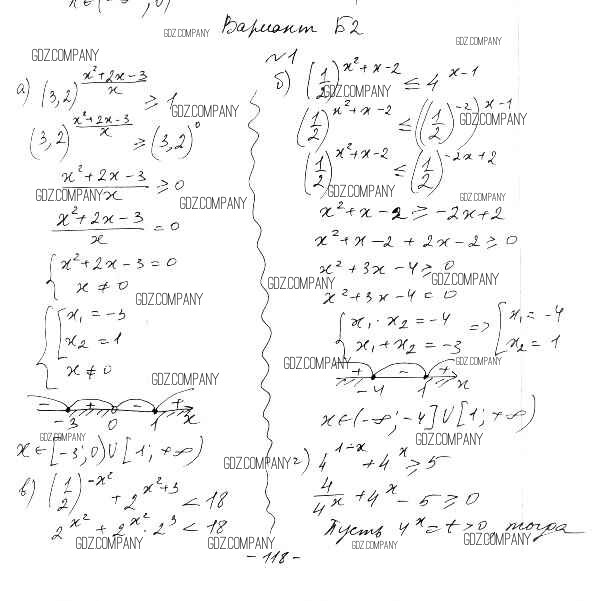 Вариант Б2
№1
а) (3,2)^{\frac{x²+2x-3}{x}} ≥ 1
(3,2)^{\frac{x²+2x-3}{x}} ≥ (3,2)^0
\frac{x²+2x-3}{x} ≥ 0
\frac{x²+2x-3}{x} = 0
{ x²+2x-3=0
x ≠ 0
{ [ x₁ = -3
x₂ = 1
x ≠ 0
- + - +
-3 0 1 x
x∈[-3; 0)∪[1; +∞)
в) (1/2)^{-x²} + 2^{x²+3} < 18
2^{x²} + 2^{x²} · 2³ < 18
б) (1/2)^{x²+x-2} ≤ 4^{x-1}
(1/2)^{x²+x-2} ≤ ((1/2)^{-2})^{x-1}
(1/2)^{x²+x-2} ≤ (1/2)^{-2x+2}
x²+x-2 ≥ -2x+2
x²+x-2+2x-2 ≥ 0
x²+3x-4 ≥ 0
x²+3x-4 = 0
{ x₁ · x₂ = -4 => [ x₁ = -4
x₁+x₂ = -3 x₂ = 1
+ - +
-4 1 x
x∈(-∞; -4]∪[1; +∞)
г) 4^{1-x} + 4^x ≥ 5
\frac{4}{4^x} + 4^x - 5 ≥ 0
Пусть 4^x = t > 0, тогда
- 118 -
GDZ.COMPANY